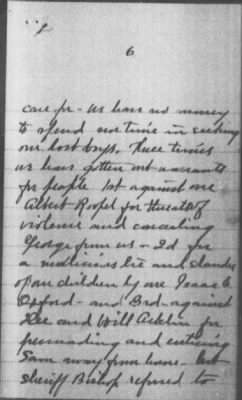 6
care for - we have no money
to spend our time in seeking
our lost boys. Three times
we have gotten out warrants
for people 1st against one
Albert Roper for threats of
violence and concealing
George from us - 2d for
a malicious lie and slander
of our children by one Isaac C.
Oxford - and 3rd - against
Lee and Will Acklin for
persuading and enticing
Sam away from home - but
Sheriff Bishop refused to